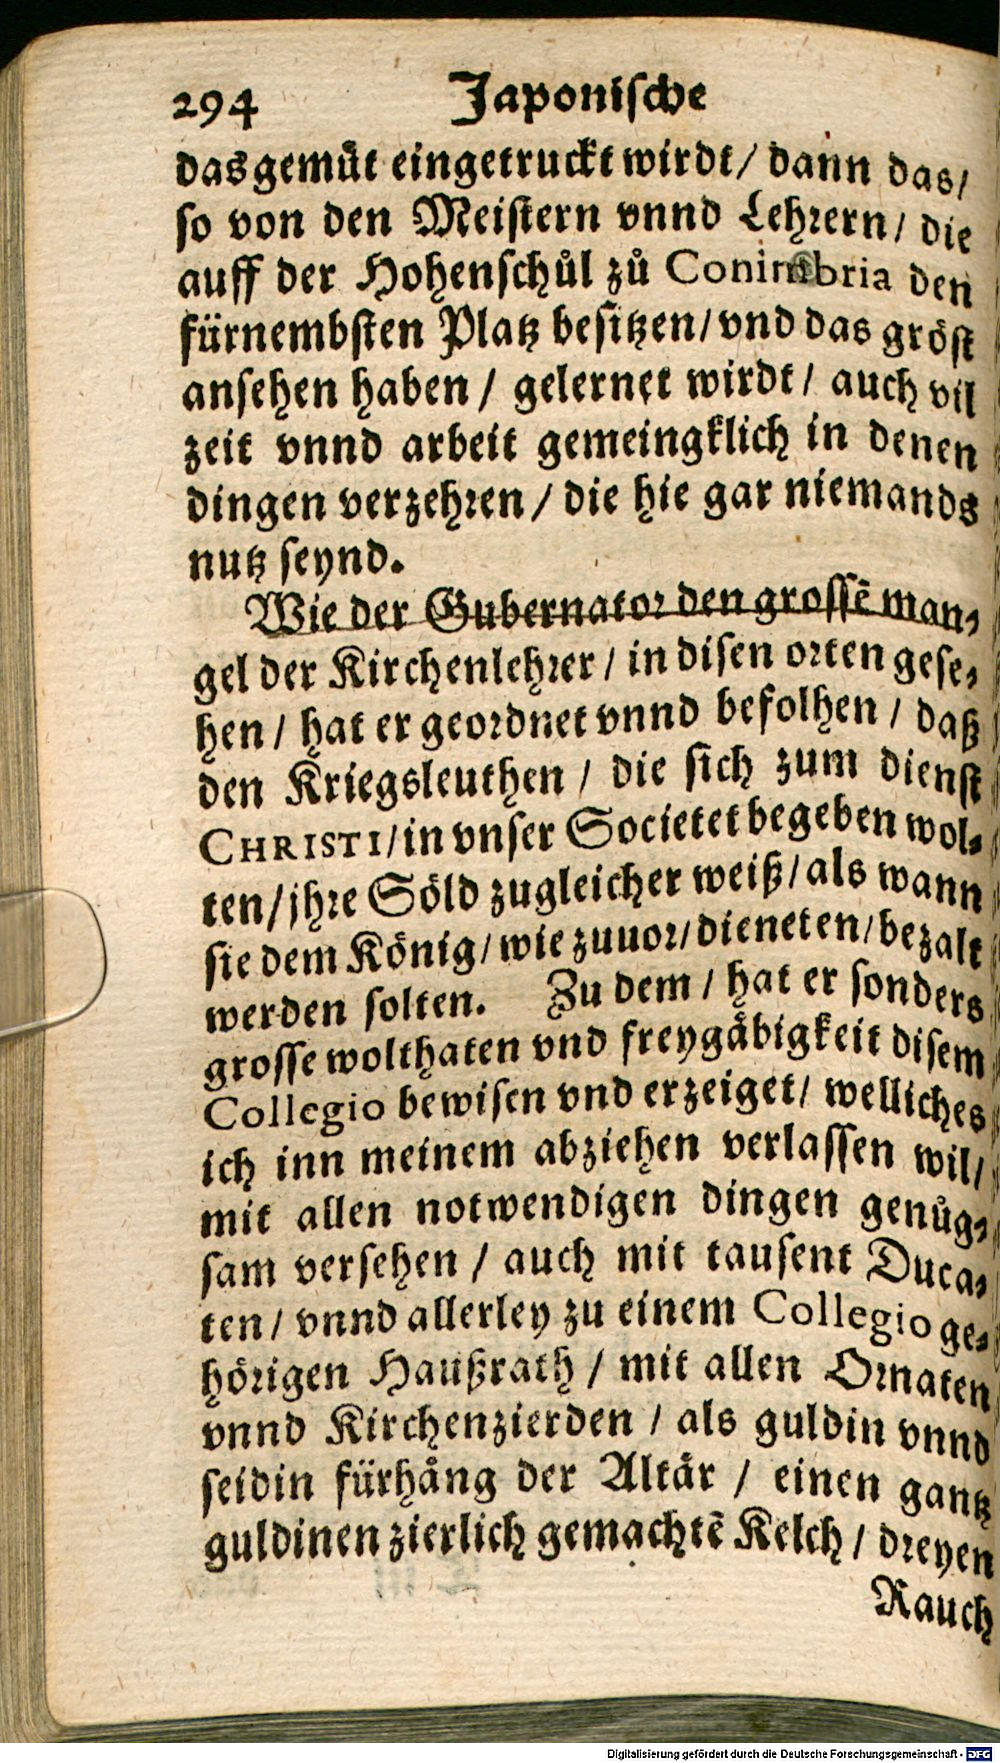 294 Japonische
das gemüt eingetruckt wirdt/ dann das/
so von den Meistern vnnd Lehrern/ die
auff der Hohenschůl zů Conimbria den
fürnembsten Platz besitzen/ vnd das gröst
ansehen haben / gelernet wirdt/ auch vil
zeit vnnd arbeit gemeingklich in denen
dingen verzehren / die hie gar niemands
nutz seynd.
Wie der Gubernator den grossē man⸗
gel der Kirchenlehrer / in disen orten gese⸗
hen/ hat er geordnet vnnd befolhen / daß
den Kriegsleuthen / die sich zum dienst
CHRISTI/ in vnser Societet begeben wol⸗
ten/ jhre Söld zugleicher weiß/ als wann
sie dem König/ wie zuuor/ dieneten/ bezalt
werden solten. Zu dem / hat er sonders
grosse wolthaten vnd freygäbigkeit disem
Collegio bewisen vnd erzeiget/ welliches
ich inn meinem abziehen verlassen wil/
mit allen notwendigen dingen genůg⸗
sam versehen / auch mit tausent Duca⸗
ten/ vnnd allerley zu einem Collegio ge⸗
hörigen Haußrath / mit allen Ornaten
vnnd Kirchenzierden / als guldin vnnd
seidin fürhäng der Altär / einen gantz
guldinen zierlich gemachtē Kelch / dreyen
Rauch
Digitalisierung gefördert durch die Deutsche Forschungsgemeinschaft - DFG